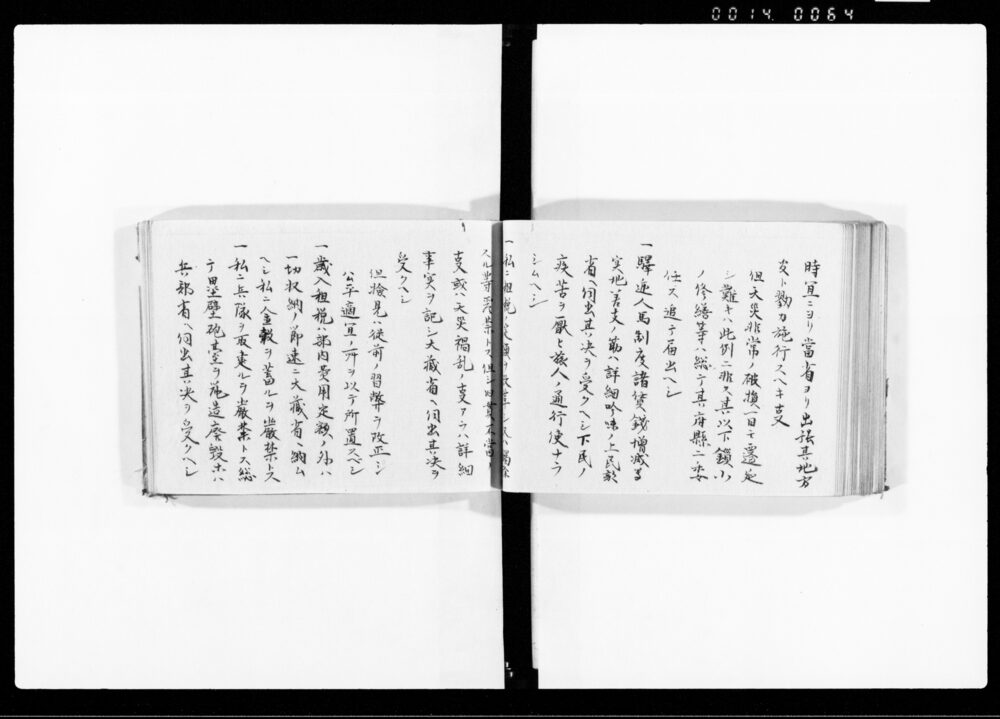 0014 0064
時宜ニヨリ當省ヨリ出張其地方
官ト勠力施行スヘキ叓
但天災非常ノ破損一日モ遷延
シ難キハ此例ニ非ス其以下鎖小
ノ修繕等ハ総テ其府縣ニ委
任ス追テ届出ヘシ
一驛逓人馬制度諸賃錢増减等
実地差支ノ筋ハ詳細吟味ノ上民部
省ヘ伺出其決ヲ受クヘシ下民ノ
疾苦ヲ厭ヒ旅人ノ通行便ナラ
シムヘシ
一私ニ租税ノ定額ヲ
スル等嚴禁トス但シ旧貫不當ノ
叓或ハ天災禍乱ノ叓アラハ詳細
事実ヲ記シ大蔵省ヘ伺出其決ヲ
受クヘシ
但檢見ハ従前ノ習弊ヲ改正シ
公平適宜ノ所ヲ以テ所置スベシ
一歳入租税ハ部内費用定額ノ外ハ
一切収納ノ節速ニ大藏省ヘ納ム
ヘシ私ニ金穀ヲ蓄ルヲ嚴禁トス
一私ニ兵隊ヲ取建ルヲ嚴禁トス総
テ塁壁砲臺ヲ築造廃毀ホハ
兵部省ヘ伺出其決ヲ受クヘシ